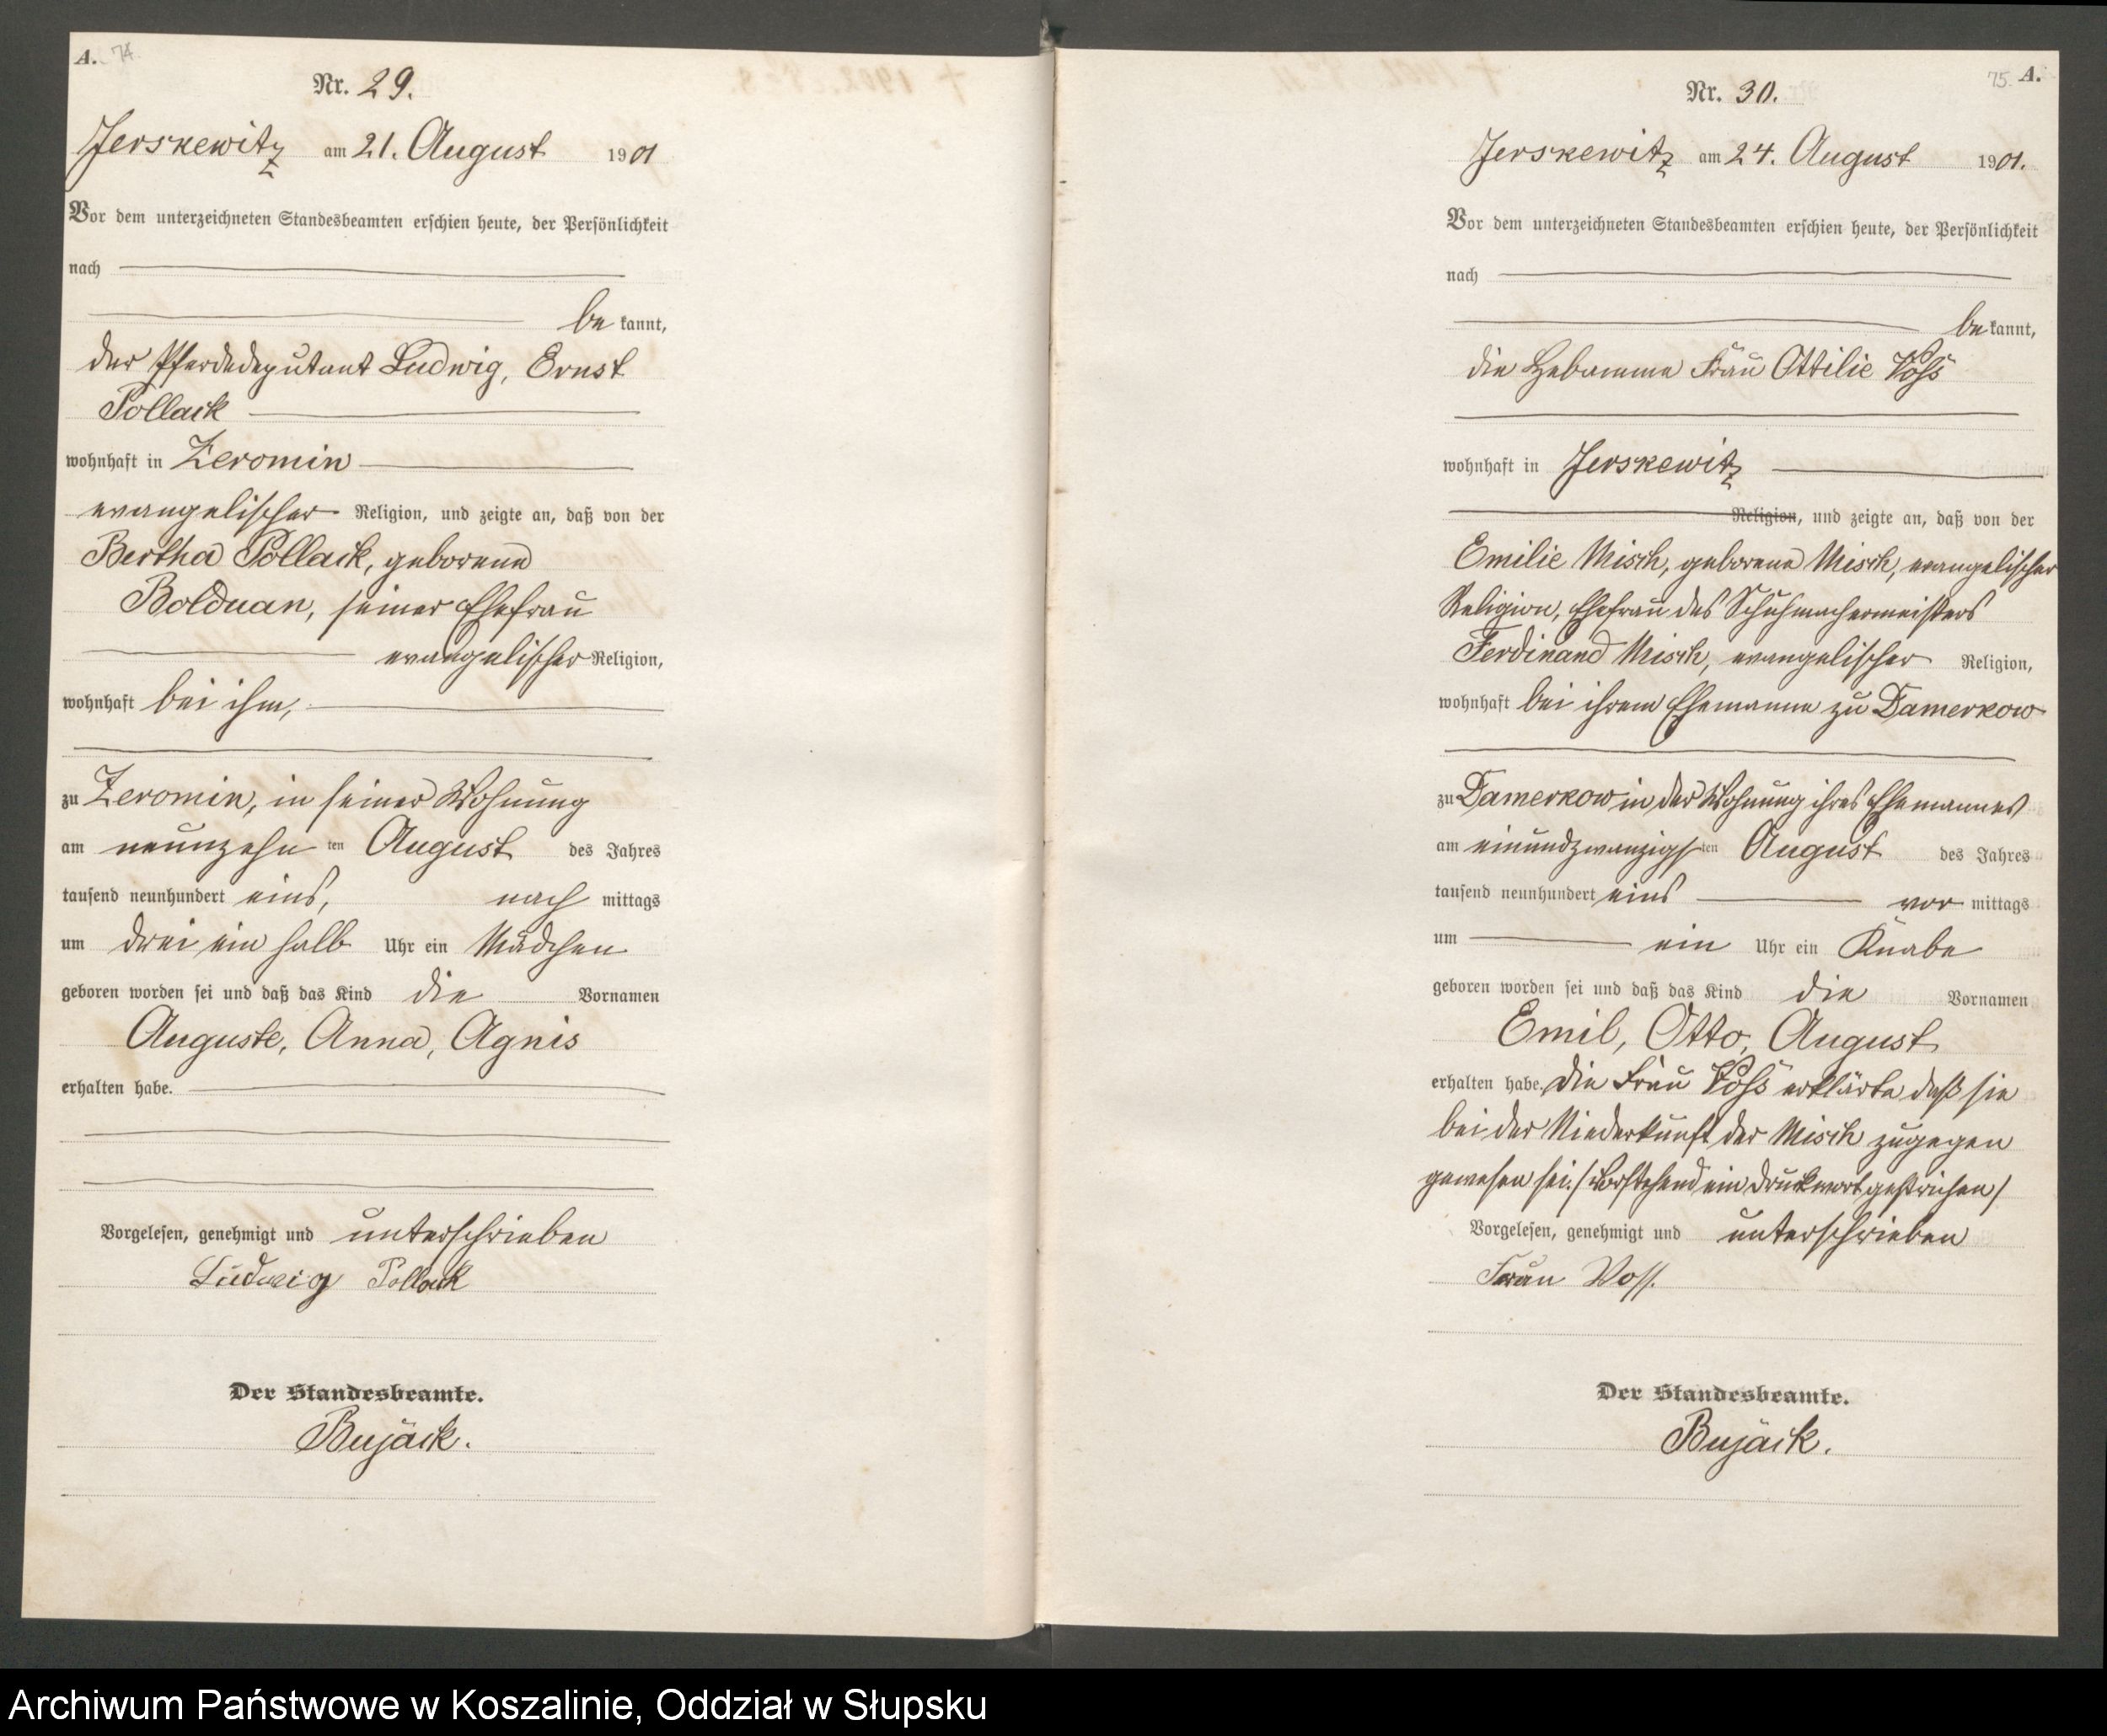 A. 74.
Nr. 29.
Jerskewitz am 21. August 1901
Vor dem unterzeichneten Standesbeamten erschien heute, der Persönlichkeit
nach
be kannt,
der Pferdedeputant Ludwig, Ernst
Pollack
wohnhaft in Zeromin
evangelischer Religion, und zeigte an, daß von der
Bertha Pollack, geborene
Bolduan, seiner Ehefrau
evangelischer Religion,
wohnhaft bei ihm,
zu Zeromin, in seiner Wohnung
am neunzehn ten August des Jahres
tausend neunhundert eins, nach mittags
um drei ein halb Uhr ein Mädchen
geboren worden sei und daß das Kind die Vornamen
Auguste, Anna, Agnes
erhalten habe.
Vorgelesen, genehmigt und unterschrieben
Ludwig Pollack
Der Standesbeamte.
Bujäck.
75. A.
Nr. 30.
Jerskewitz am 24. August 1901.
Vor dem unterzeichneten Standesbeamten erschien heute, der Persönlichkeit
nach
be kannt,
die Hebamme Frau Ottilie Voß
wohnhaft in Jerskewitz
Religion, und zeigte an, daß von der
Emilie Misch, geborene Misch, evangelischer
Religion, Ehefrau des Schuhmachermeisters
Ferdinand Misch, evangelischer Religion,
wohnhaft bei ihrem Ehemanne zu Damerkow
zu Damerkow in der Wohnung ihres Ehemannes
am einundzwanzigs ten August des Jahres
tausend neunhundert eins vor mittags
um ein Uhr ein Knabe
geboren worden sei und daß das Kind die Vornamen
Emil, Otto, August
erhalten habe. Die Frau Voß erklärte daß sie
bei der Niederkunft der Misch zugegen
gewesen sei. / Vorstehend ein Druckwort gestrichen /
Vorgelesen, genehmigt und unterschrieben
Frau Voss.
Der Standesbeamte.
Bujäck.
Archiwum Państwowe w Koszalinie, Oddział w Słupsku